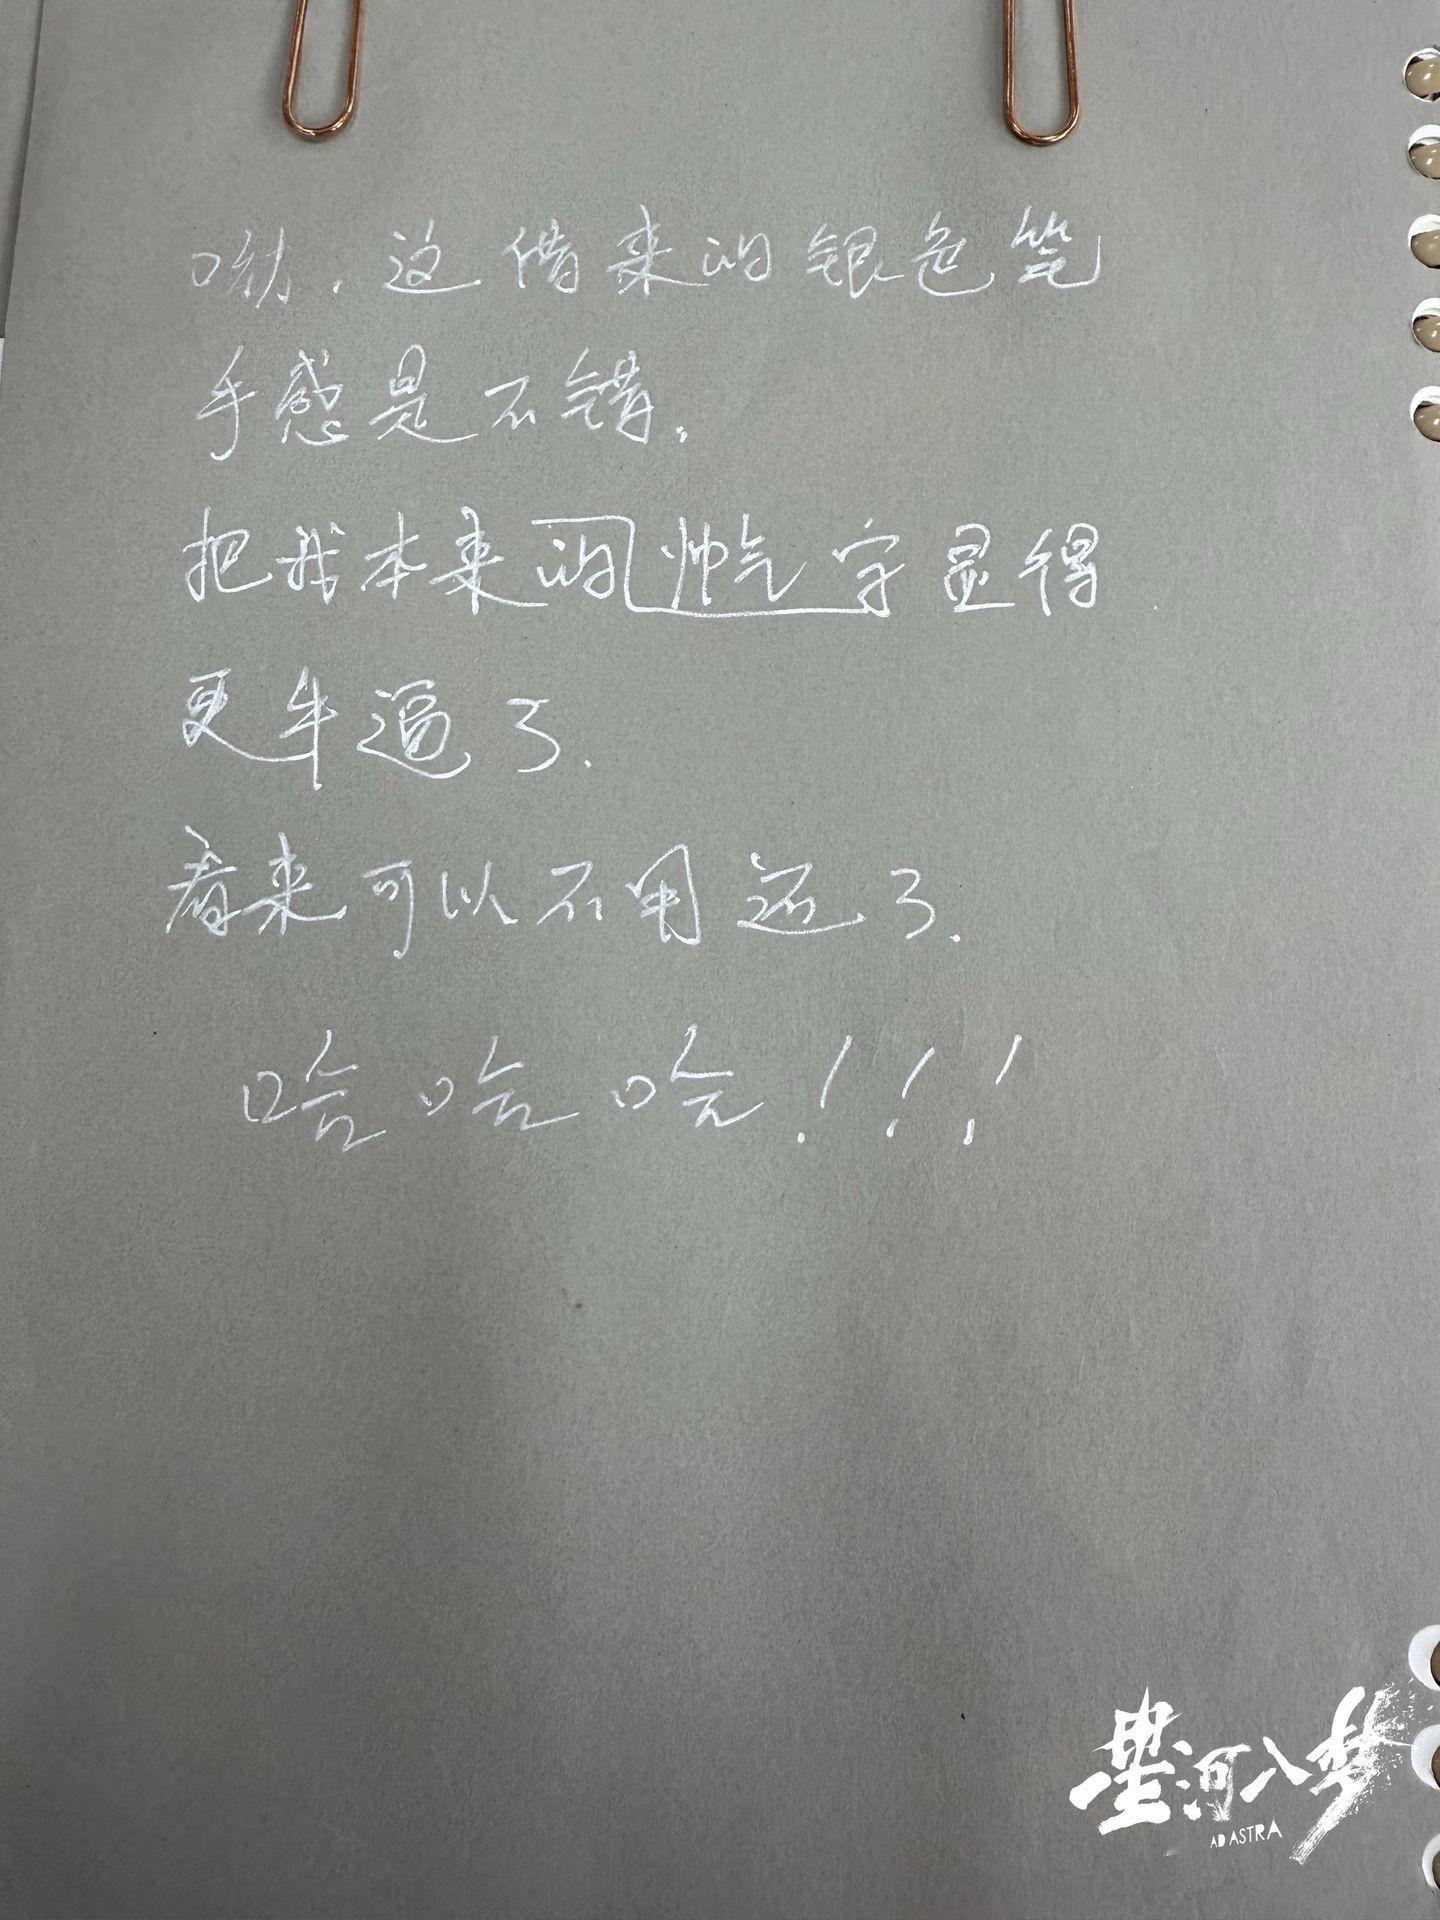 呦，这借来的银色笔
手感是不错.
把我本来的帅气字显得
更牛逼了.
看来可以不用还了.
哈哈哈！！！
星河入梦
AD ASTRA